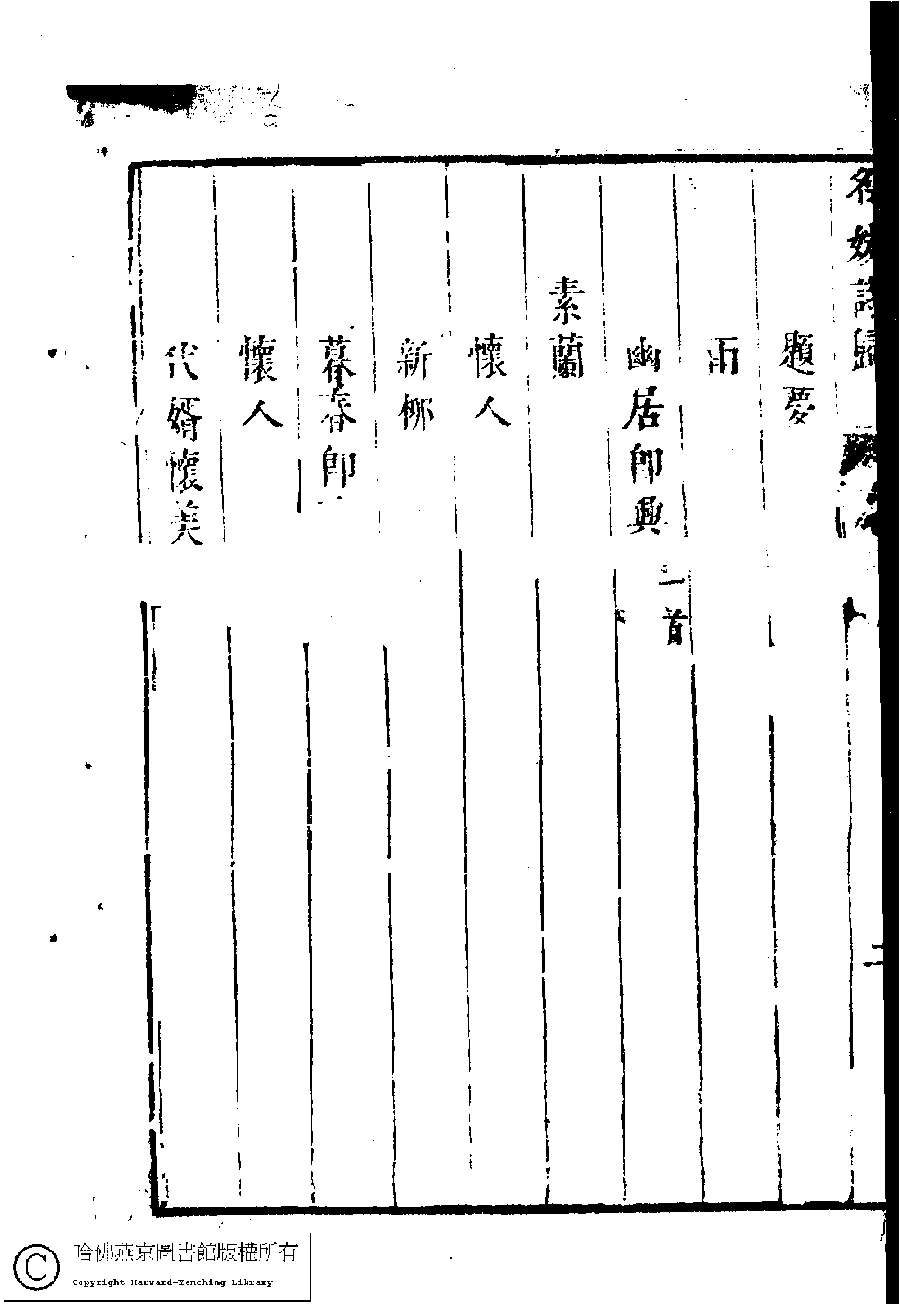 名媛詩歸
二
題夢
雨
幽居卽興 二首
素蘭
懷人
新柳
暮春卽
懷人
代婿懷美
哈佛燕京圖書館版權所有
Copyright Harvard-Yenching Library